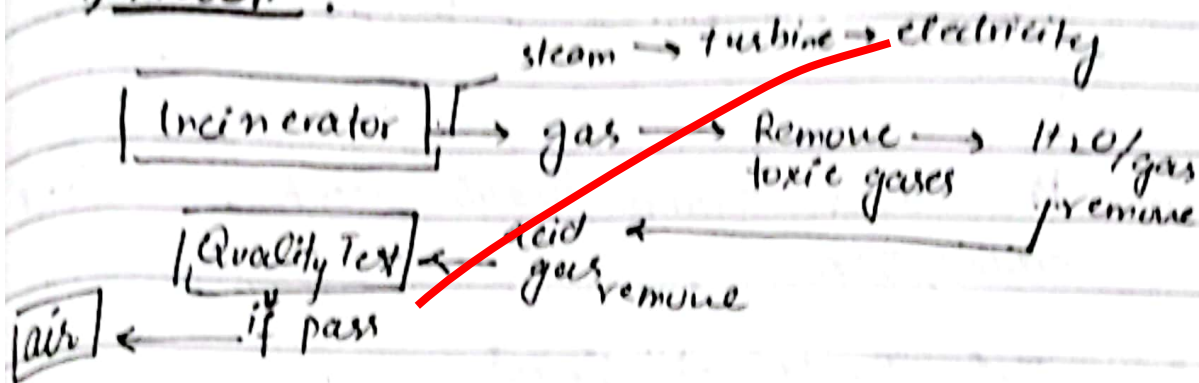 steam → turbine → electricity
Incinerator → gas → Remove toxic gases → H₂O/gas remove
Quality Test ← Acid gas remove
if pass
air ←